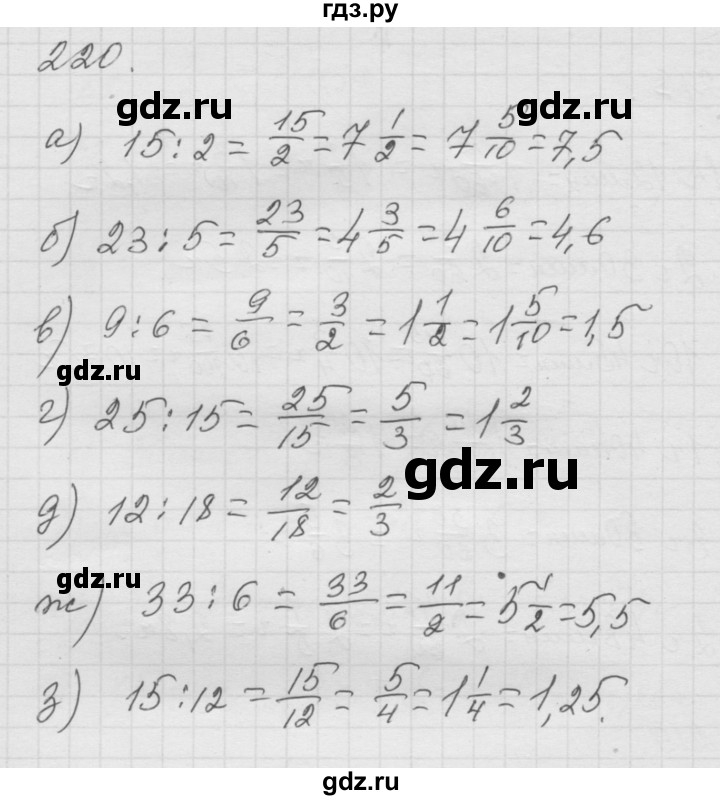 гдз.ру
220.
gdz.ru gdz.ru
а) 15 : 2 = 15/2 = 7 1/2 = 7 5/10 = 7,5
б) 23 : 5 = 23/5 = 4 3/5 = 4 6/10 = 4,6
в) 9 : 6 = 9/6 = 3/2 = 1 1/2 = 1 5/10 = 1,5
gdz.ru
г) 25 : 15 = 25/15 = 5/3 = 1 2/3
gdz.ru
д) 12 : 18 = 12/18 = 2/3
gdz.ru
ж) 33 : 6 = 33/6 = 11/2 = 5 1/2 = 5,5
з) 15 : 12 = 15/12 = 5/4 = 1 1/4 = 1,25.
gdz.ru